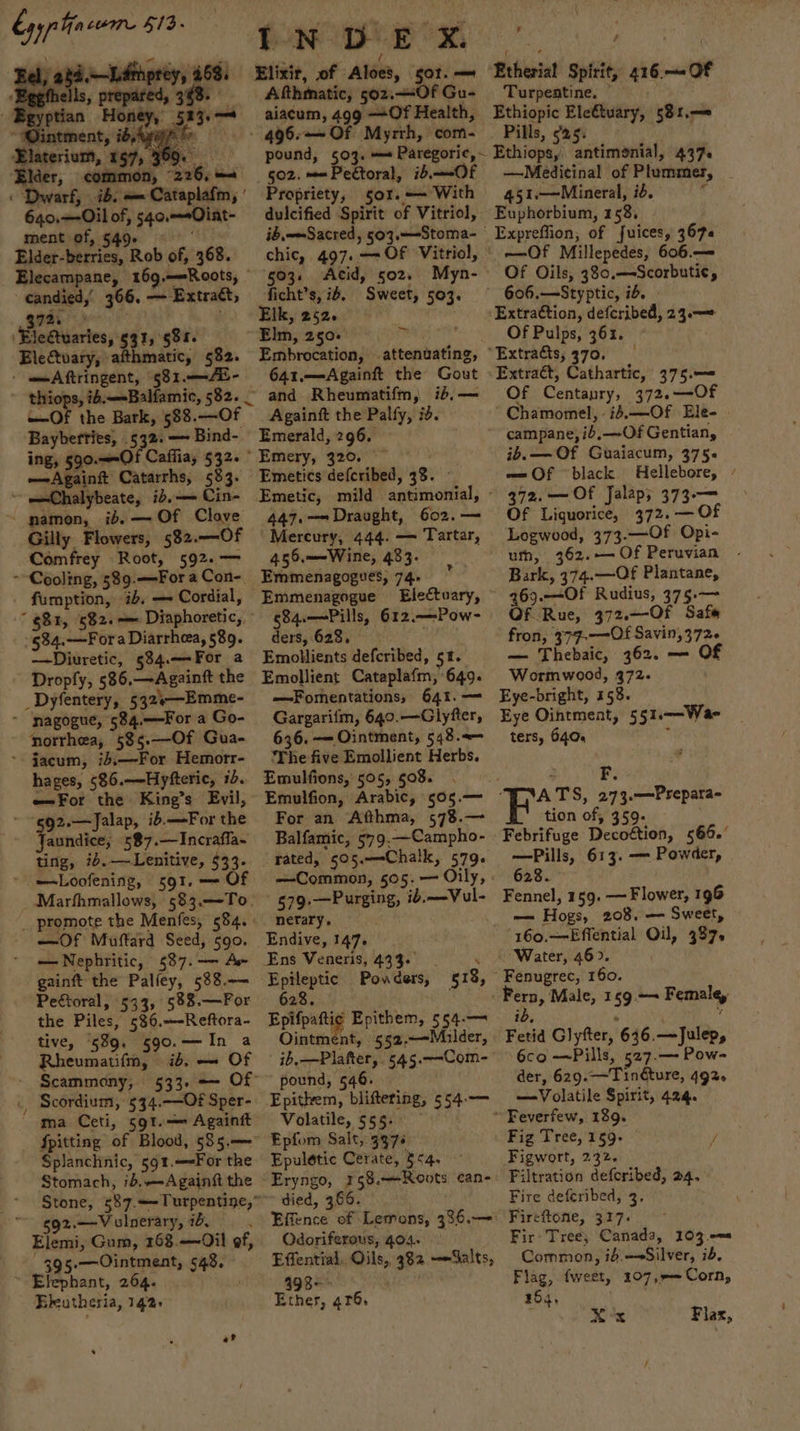 Egyptiacum 513.
INDEX.
Eel, 262.—Lamprey, 268.
Eggshells, prepared, 348.
Egyptian Honey, 513.—
Ointment, ib.
Elaterium, 157, 369.
Elder, common, 226, —
Dwarf, ib. — Cataplaſm,
640.—Oil of, 540.—Oint-
ment of, 549.
Elder-berries, Rob of, 368.
Elecampane, 169.—Roots,
candied, 366. — Extract,
372.
Electuaries, 531, 581.
Electuary, aſthmatic, 582.
—Aſtringent, 581.—Æ-
thiops, ib.—Balſamic, 582.
—Of the Bark, 588.—Of
Bayberries, 532. — Bind-
ing, 590.—Of Caſſia, 532.
—Againſt Catarrhs, 583.
—Chalybeate, ib. — Cin-
namon, ib. — Of Clove
Gilly Flowers, 582.—Of
Comfrey Root, 592. —
Cooling, 589.—For a Con-
ſumption, ib. — Cordial,
581, 582. — Diaphoretic,
584.—For a Diarrhœa, 589.
—Diuretic, 584.—For a
Dropſy, 586.—Againſt the
Dyſentery, 532.—Emme-
nagogue, 584.—For a Go-
norrhœa, 585.—Of Gua-
jacum, ib.—For Hemorr-
hages, 586.—Hyſteric, ib.
—For the King's Evil,
592.—Jalap, ib.—For the
Jaundice, 587.—Incraſſa-
ting, ib.—Lenitive, 533.
—Looſening, 591. — Of
Marſhmallows, 583.—To
promote the Menſes, 584.
—Of Muſtard Seed, 590.
— Nephritic, 587. — A-
gainſt the Palſey, 588.—
Pectoral, 533, 588.—For
the Piles, 586.—Reſtora-
tive, 589. 590. — In a
Rheumatiſm, ib. — Of
Scammony, 533. — Of
Scordium, 534.—Of Sper-
ma Ceti, 591.— Againſt
ſpitting of Blood, 585.—
Splanchnic, 591.—For the
Stomach, ib.—Againſt the
Stone, 587.—Turpentine,
592.—Vulnerary, ib.
Elemi, Gum, 168.—Oil of,
395.—Ointment, 548.
Elephant, 264.
Eleutheria, 142.
Elixir, of Aloes, 501. —
Aſthmatic, 502.—Of Gu-
aiacum, 499.—Of Health,
496. — Of Myrrh, com-
pound, 503. — Paregoric,
502. — Pectoral, ib.—Of
Propriety, 501. — With
dulcified Spirit of Vitriol,
ib.—Sacred, 503.—Stoma-
chic, 497. — Of Vitriol,
503. Acid, 502. Myn-
ficht's, ib. Sweet, 503.
Elk, 252.
Elm, 250.
Embrocation, attenuating,
641.—Againſt the Gout
and Rheumatiſm, ib. —
Againſt the Palſy, ib.
Emerald, 296.
Emery, 320.
Emetics deſcribed, 38.
Emetic, mild antimonial,
447.—Draught, 602. —
Mercury, 444. — Tartar,
456.—Wine, 483.
Emmenagogues, 74.
Emmenagogue Electuary,
584.—Pills, 612.—Pow-
ders, 628.
Emollients deſcribed, 51.
Emollient Cataplaſm, 649.
—Fomentations, 641. —
Gargariſm, 640.—Glyſter,
636. — Ointment, 548.—
The five Emollient Herbs.
Emulſions, 505, 508.
Emulſion, Arabic, 505.—
For an Aſthma, 578.—
Balſamic, 579.—Campho-
rated, 505.—Chalk, 579.
—Common, 505. — Oily,
579.—Purging, ib.—Vul-
nerary.
Endive, 147.
Ens Veneris, 433.
Epileptic Powders, 518,
628.
Epiſpaſtic Epithem, 554.—
Ointment, 552.—Milder,
ib.—Plaſter, 545.—Com-
pound, 546.
Epithem, bliſtering, 554.—
Volatile, 555.
Epſom Salt, 337.
Epulotic Cerate, 554.
Eryngo, 158.—Roots can-
died, 366.
Eſſence of Lemons, 386.—
Odoriferous, 404.
Eſſential Oils, 382.—Salts,
398.
Ether, 416.
Etherial Spirit, 416.—Of
Turpentine.
Ethiopic Electuary, 581.—
Pills, 525.
Ethiops, antimonial, 437.
—Medicinal of Plummer,
451.—Mineral, ib.
Euphorbium, 158.
Expreſſion, of Juices, 367.
—Of Millepedes, 606.—
Of Oils, 380.—Scorbutic,
606.—Styptic, ib.
Extraction, deſcribed, 23.—
Of Pulps, 361.
Extracts, 370.
Extract, Cathartic, 375.—
Of Centaury, 372.—Of
Chamomel, ib.—Of Ele-
campane, ib.—Of Gentian,
ib. — Of Guaiacum, 375.
— Of black Hellebore,
372. — Of Jalap, 373.—
Of Liquorice, 372. — Of
Logwood, 373.—Of Opi-
um, 362. — Of Peruvian
Bark, 374.—Of Plantane,
369.—Of Rudius, 375.—
Of Rue, 372.—Of Saſſe
fron, 377.—Of Savin, 372.
— Thebaic, 362. — Of
Wormwood, 372.
Eye-bright, 158.
Eye Ointment, 551.—Wa-
ters, 640.
F.
FATS, 273.—Prepara-
tion of, 359.
Febrifuge Decoction, 566.
—Pills, 613. — Powder,
628.
Fennel, 159. — Flower, 196
— Hogs, 208. — Sweet,
160.—Eſſential Oil, 387.
Water, 462.
Fenugrec, 160.
Fern, Male, 159.— Female,
ib.
Fetid Glyſter, 636.—Julep,
600 —Pills, 527.— Pow-
der, 629.—Tincture, 492.
—Volatile Spirit, 424.
Feverfew, 189.
Fig Tree, 159.
Figwort, 232.
Filtration deſcribed, 24.
Fire deſcribed, 3.
Fireſtone, 317.
Fir Tree, Canada, 103.—
Common, ib.—Silver, ib.
Flag, ſweet, 107,— Corn,
164.
X x
Flax,